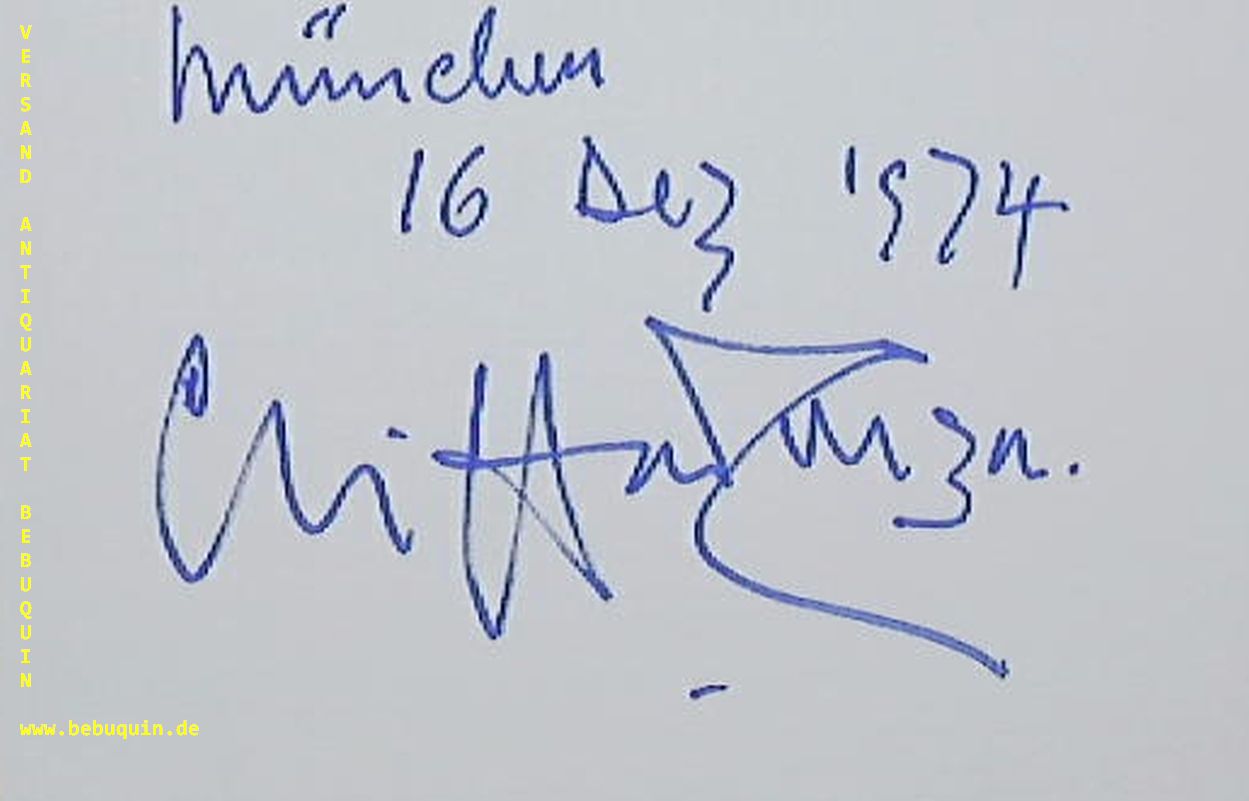 München
16 Dez 1974
VERSAND ANTIQUARIAT BEBUQUIN
www.bebuquin.de